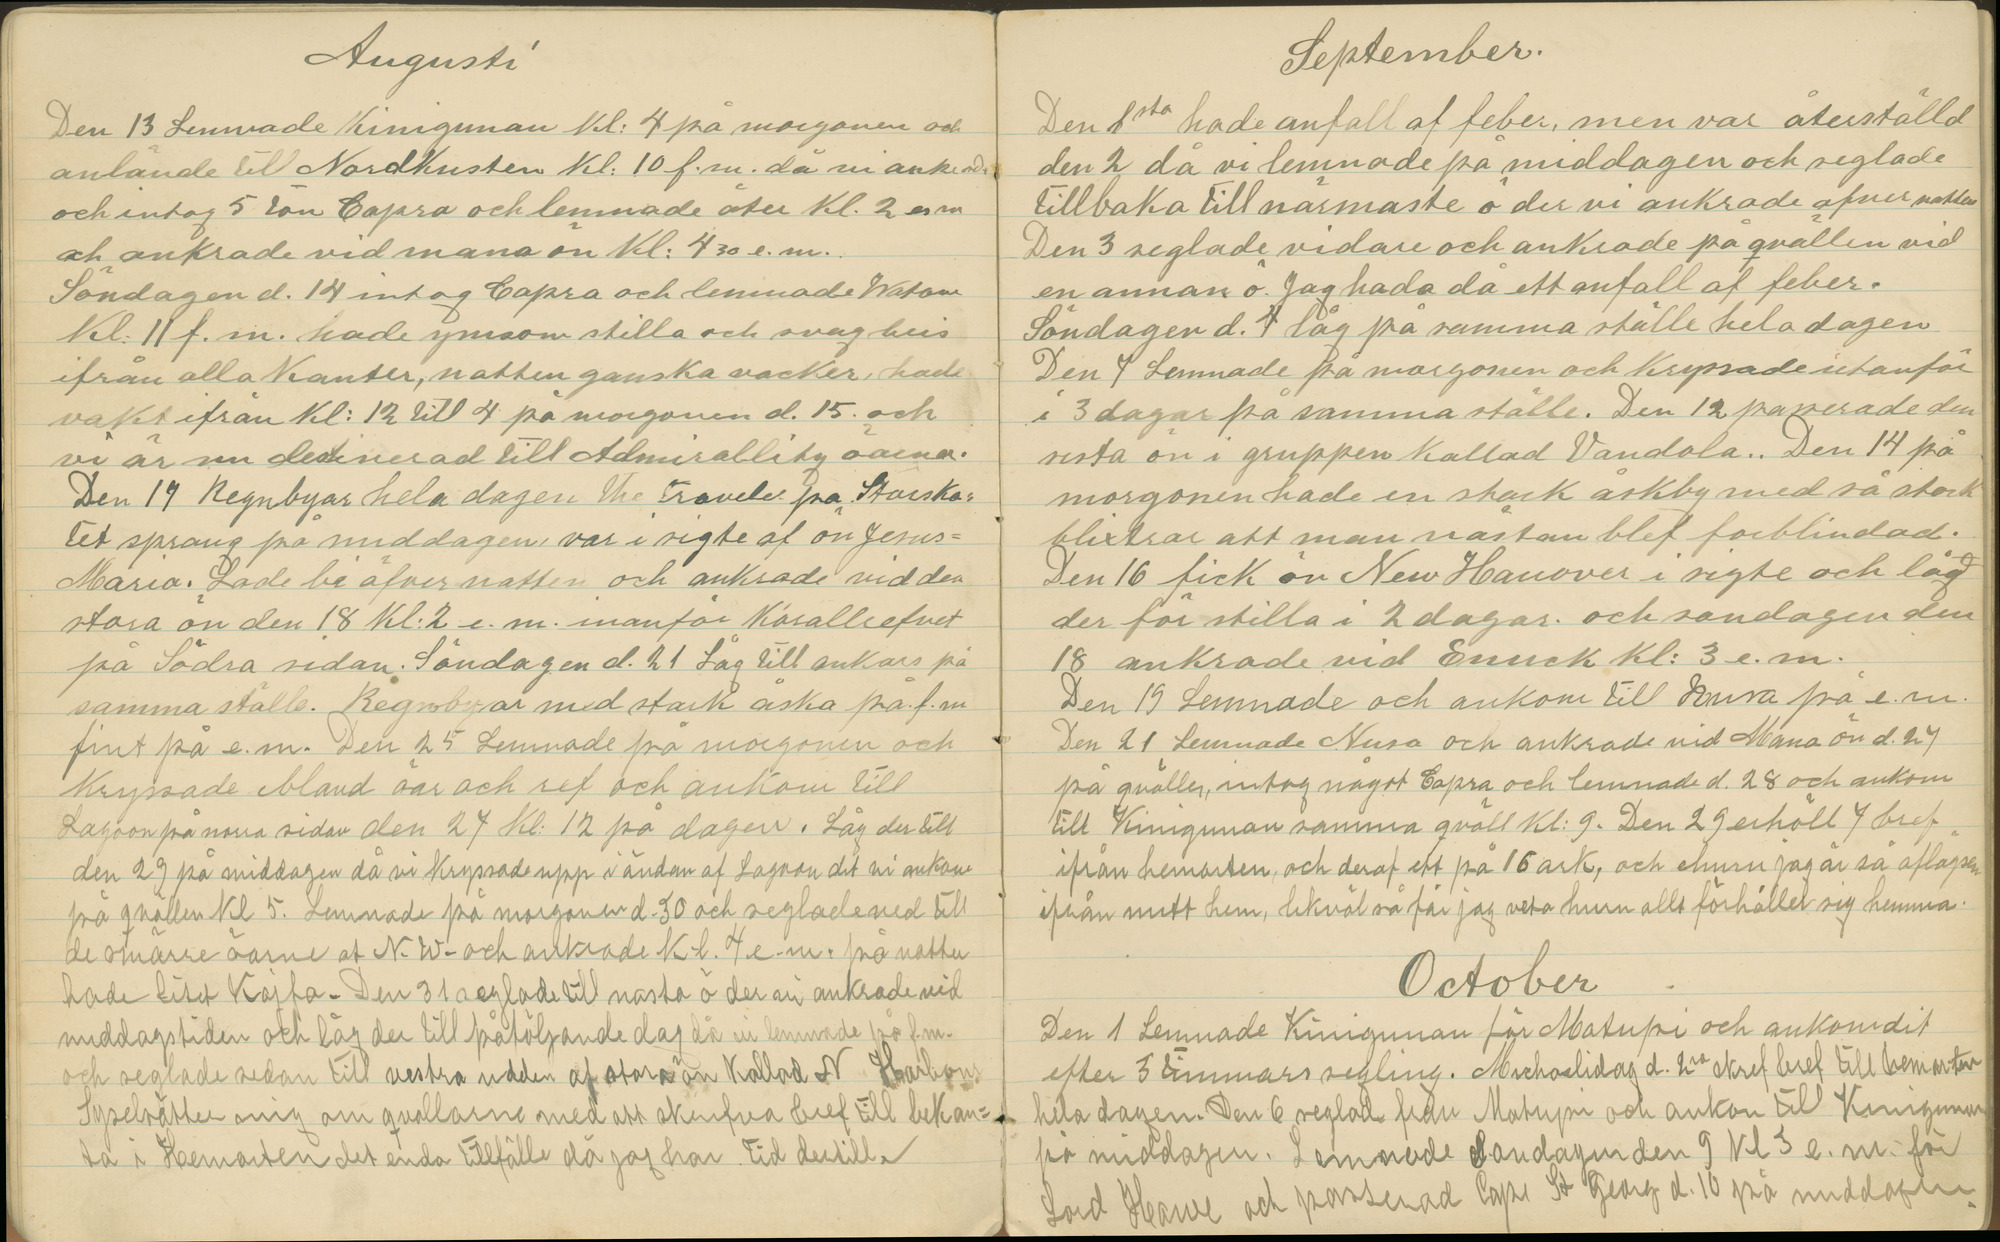 Augusti
Den 13 Lemnade Kinigunan Kl: 4 på morgonen och
anlände till Nordkusten Kl: 10 f.m. då vi ankrade
och intog 5 ton Copra och lemnade åter Kl. 2 e.m
och ankrade vid mana ön Kl: 4 30 e.m.
Söndagen d. 14 intog Copra och lemnade Watom
Kl: 11 f.m. hade ymsom stilla och svag bris
ifrån alla Kanter, natten ganska vacker, hade
vakt ifrån Kl: 12 till 4 på morgonen d. 15. och
vi är nu destinerad till Admirallity öarna.
Den 17 Regnbyar hela dagen the traveler på Storsko=
tet sprang på middagen, var i sigte af ön Jesus=
Maria. Lade bi öfver natten och ankrade vid den
stora ön den 18 Kl: 2 e.m. inanför Korallrefvet
på Södra sidan. Söndagen d. 21 Låg till ankars på
samma ställe. Regnbyar med stark åska på f.m
fint på e.m. Den 25 Lemnade på morgonen och
Kryssade ibland öar och ref och ankom till
Lagoon på norra sidan den 27 Kl: 12 på dagen. Låg der till
den 29 på middagen då vi Kryssade upp i ändan af Lagoon dit vi ankom
på qvällen Kl 5. Lemnade på morgonen d. 30 och seglade ned till
de smärre öarne at N.W- och ankrade Kl. 4 e.m. på natten
hade litet Kojfa- Den 31 seglade till nästa ö der vi ankrade vid
middagstiden och låg der till påföljande dag då vi lemnade på f.m.
och seglade sedan till vestra udden af stora ön Kallad N Harbour
Syselsätter mig om qvällarne med att skrifva bref till bekan=
ta i Hemorten det enda tillfälle då jag har tid dertill.
September.
Den 1sta hade anfall af feber, men var återställd
den 2 då vi lemnade på middagen och seglade
tillbaka till närmaste ö der vi ankrade öfver natten
Den 3 seglade vidare och ankrade på qvällen vid
en annan ö. Jag hada då ett anfall af feber.
Söndagen d. 4 låg på samma ställe hela dagen
Den 7 Lemnade på morgonen och Kryssade utanför
i 3 dagar på samma ställe. Den 12 passerade den
sista ön i gruppen Kallad Vandola.. Den 14 på
morgonen hade en stark åskby med så stark
blixtrar att man nästan blef förblindad.
Den 16 fick ön New Hanover i sigte och låg
der för stilla i 2 dagar. och söndagen den
18 ankrade vid Enuck Kl: 3 e.m.
Den 19 Lemnade och ankom till Nusa på e.m.
Den 21 Lemnade Nusa och ankrade vid Mana ön d. 27
på qvällen, intog något Copra och lemnade d. 28 och ankom
till Kinigunan samma qväll Kl: 9. Den 29 erhöll 7 bref
ifrån hemorten, och deraf ett på 16 ark, och ehuru jag är så aflägsen
ifrån mitt hem, likväl så får jag veta huru allt förhåller sig hemma.
October
Den 1 Lemnade Kinigunan för Matupi och ankom dit
efter 3 timmars segling. Michaelidag d. 2ra skref bref till hemorten
hela dagen. Den 6 seglade från Matupi och ankom till Kinigunan
på middagen. Lemnade Söndagen den 9 Kl 3 e.m. för
Lord Howe och passerad Cape St Georg d. 10 på middagen.